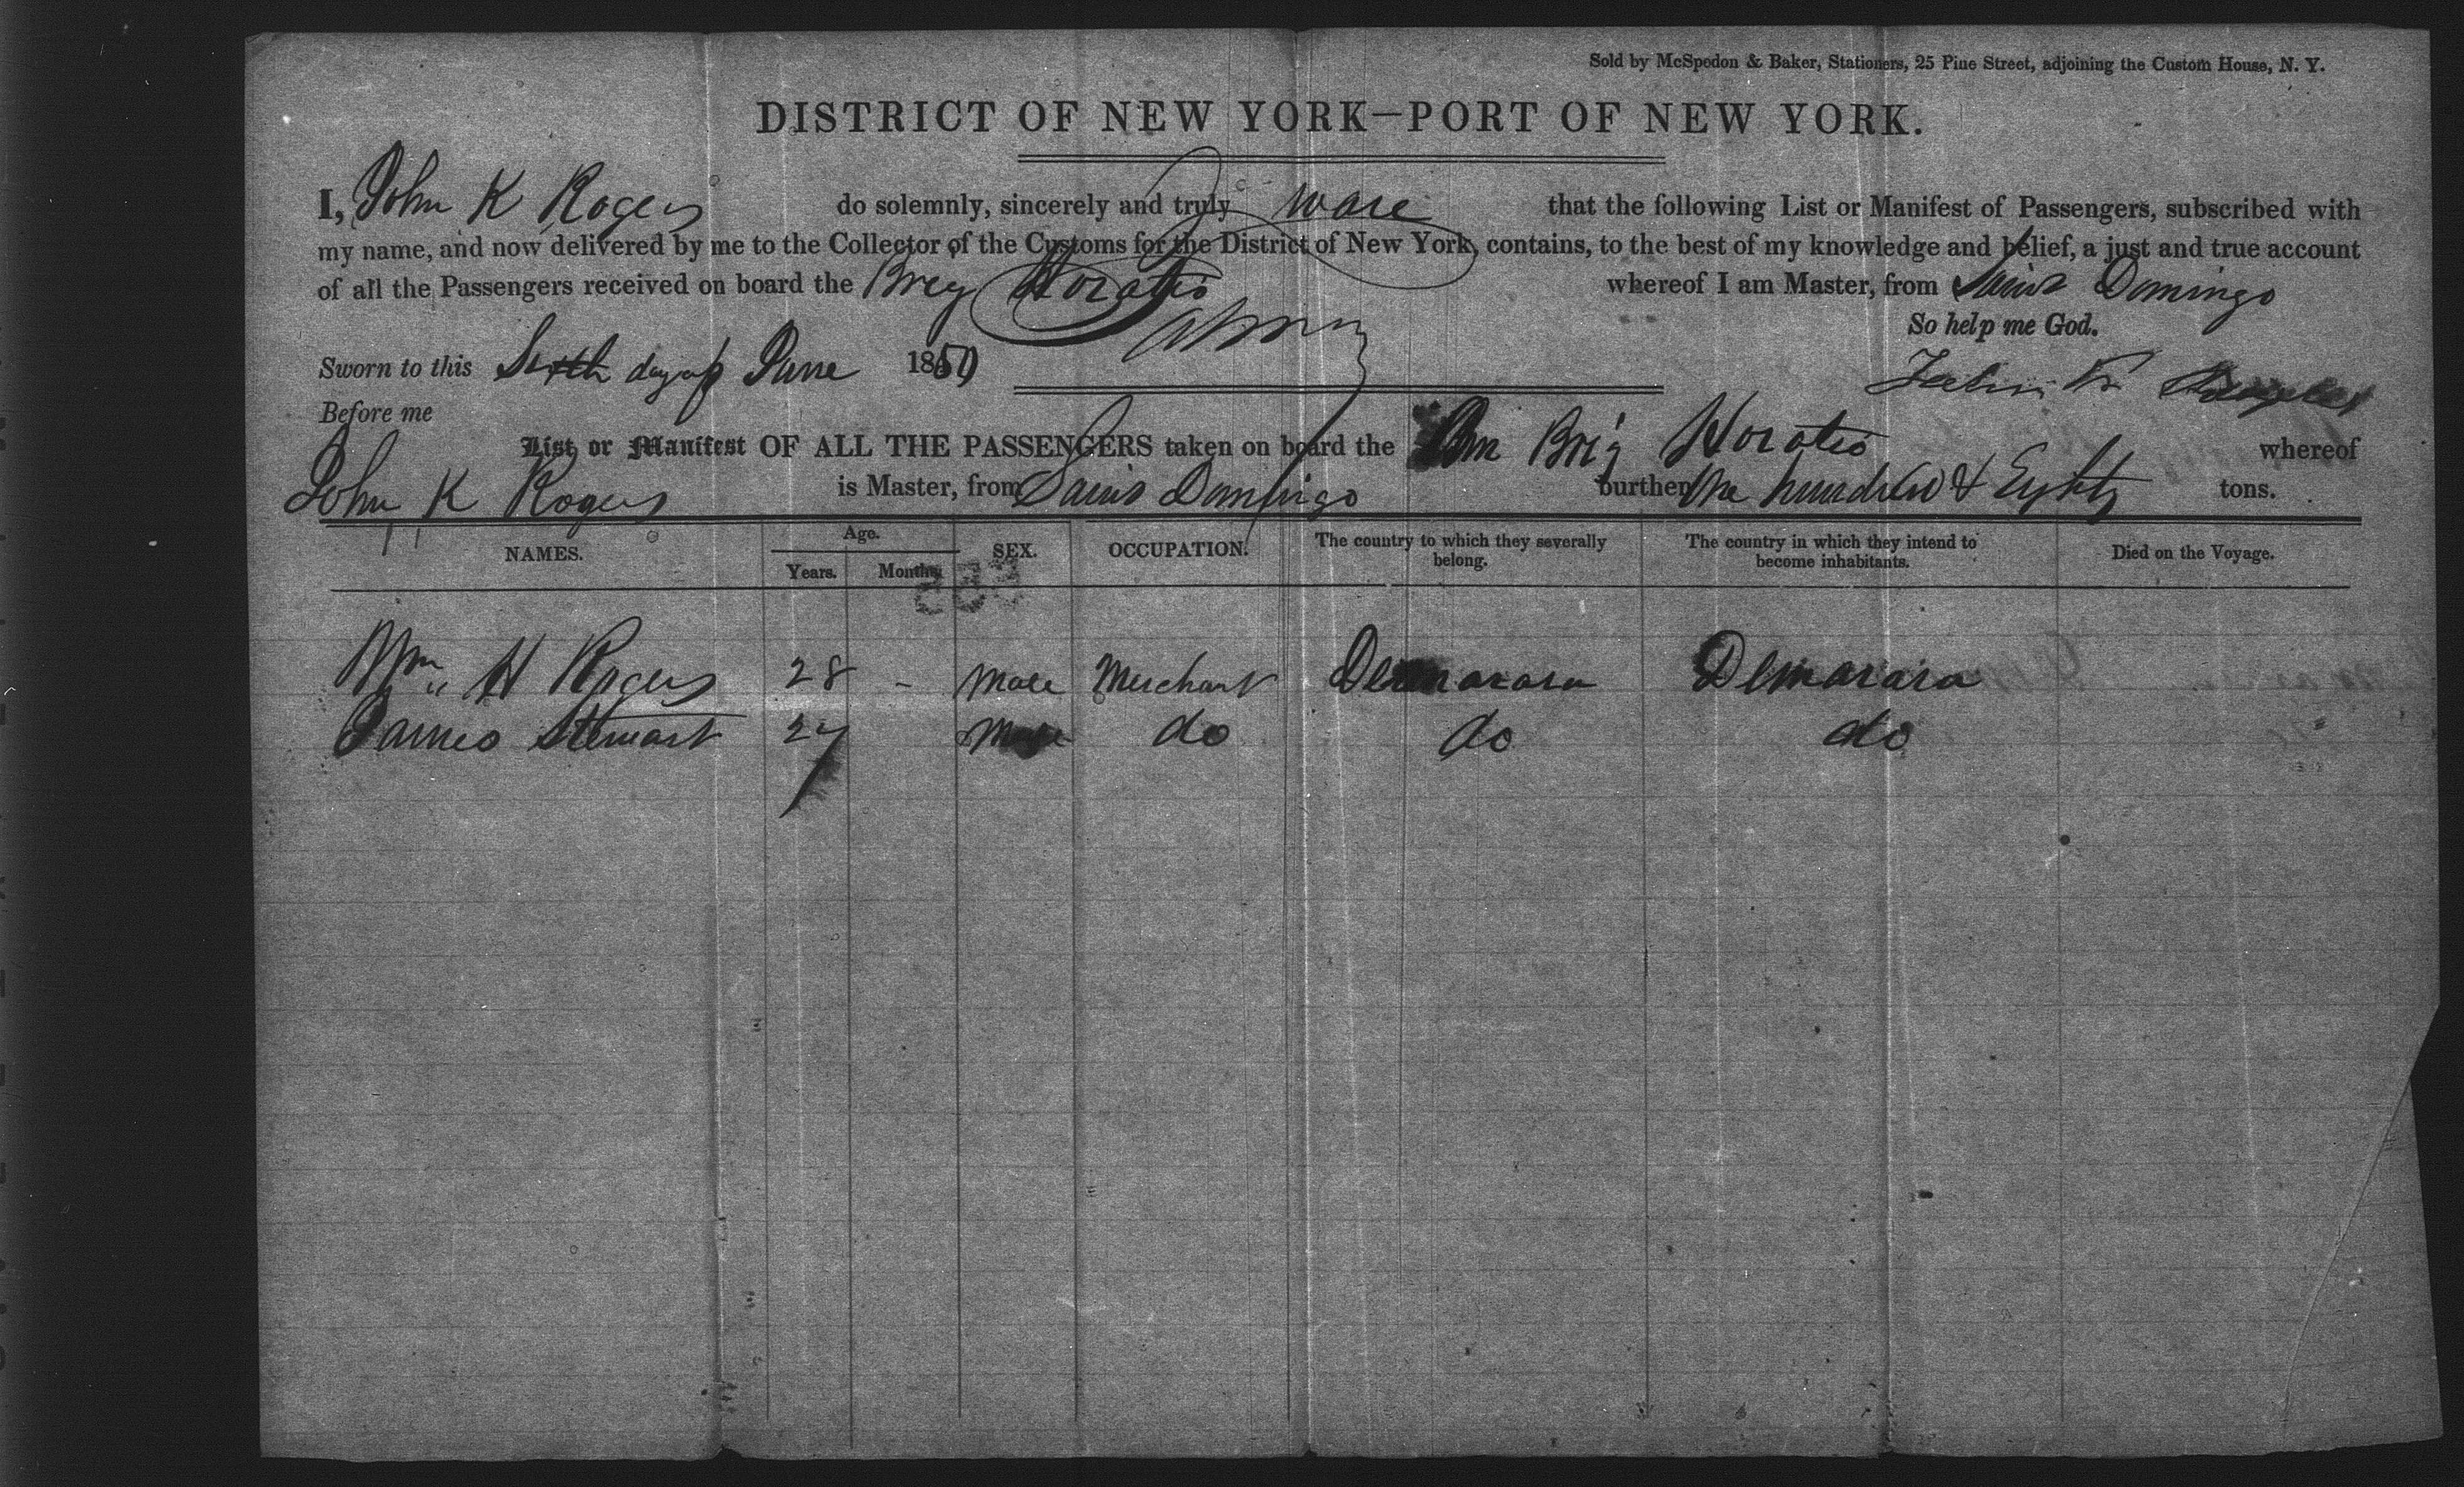 Sold by McSpedon & Baker, Stationers, 25 Pine Street, adjoining the Custom House, N. Y.
DISTRICT OF NEW YORK—PORT OF NEW YORK.
I, John K Rogers do solemnly, sincerely and truly sware that the following List or Manifest of Passengers, subscribed with
my name, and now delivered by me to the Collector of the Customs for the District of New York, contains, to the best of my knowledge and belief, a just and true account
of all the Passengers received on board the Brig Horatio whereof I am Master, from Saint Domingo
So help me God.
Sworn to this Sixth day of June 1850
John K Rogers
Before me
List or Manifest OF ALL THE PASSENGERS taken on board the Am Brig Horatio whereof
John K Rogers is Master, from Saint Domingo burthen One hundred & Eighty tons.
NAMES. Age. Years. Months. SEX. OCCUPATION. The country to which they severally belong. The country in which they intend to become inhabitants. Died on the Voyage.
Wm H Rogers 28 - Male Merchant Demarara Demarara
James Stewart 27 Male do do do